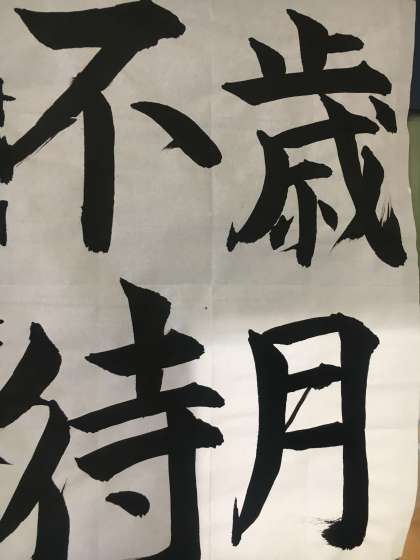 歳月
不待